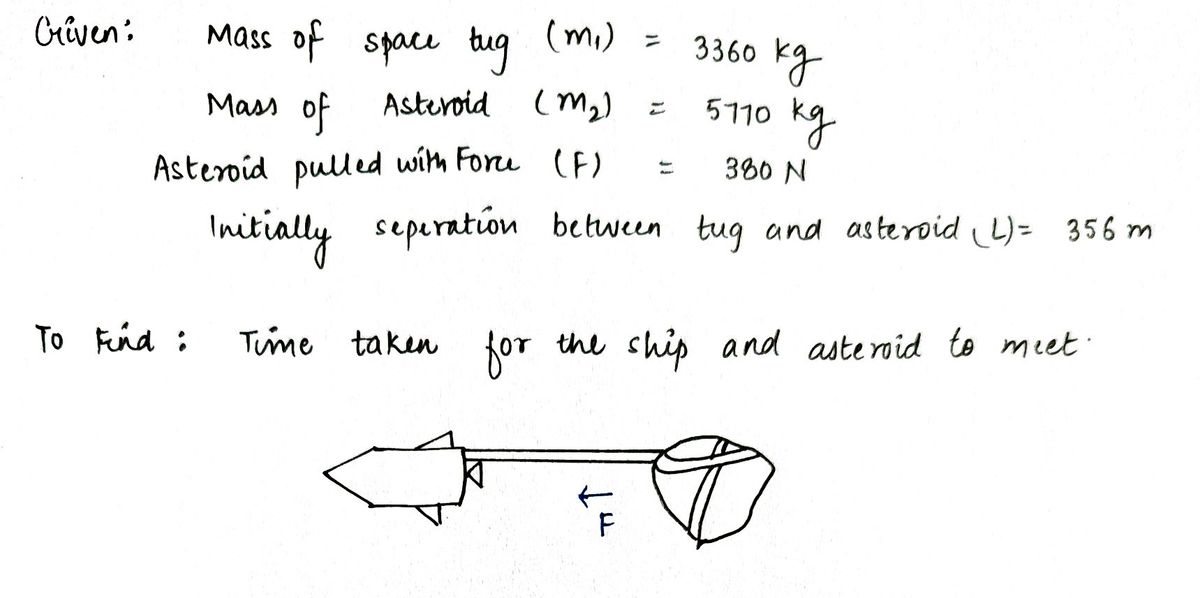 Given: Mass of space tug (m₁) = 3360 kg
Mass of Asteroid (m₂) = 5770 kg
Asteroid pulled with Force (F) = 380 N
Initially seperation between tug and asteroid (L) = 356 m
To Find : Time taken for the ship and asteroid to meet.
F